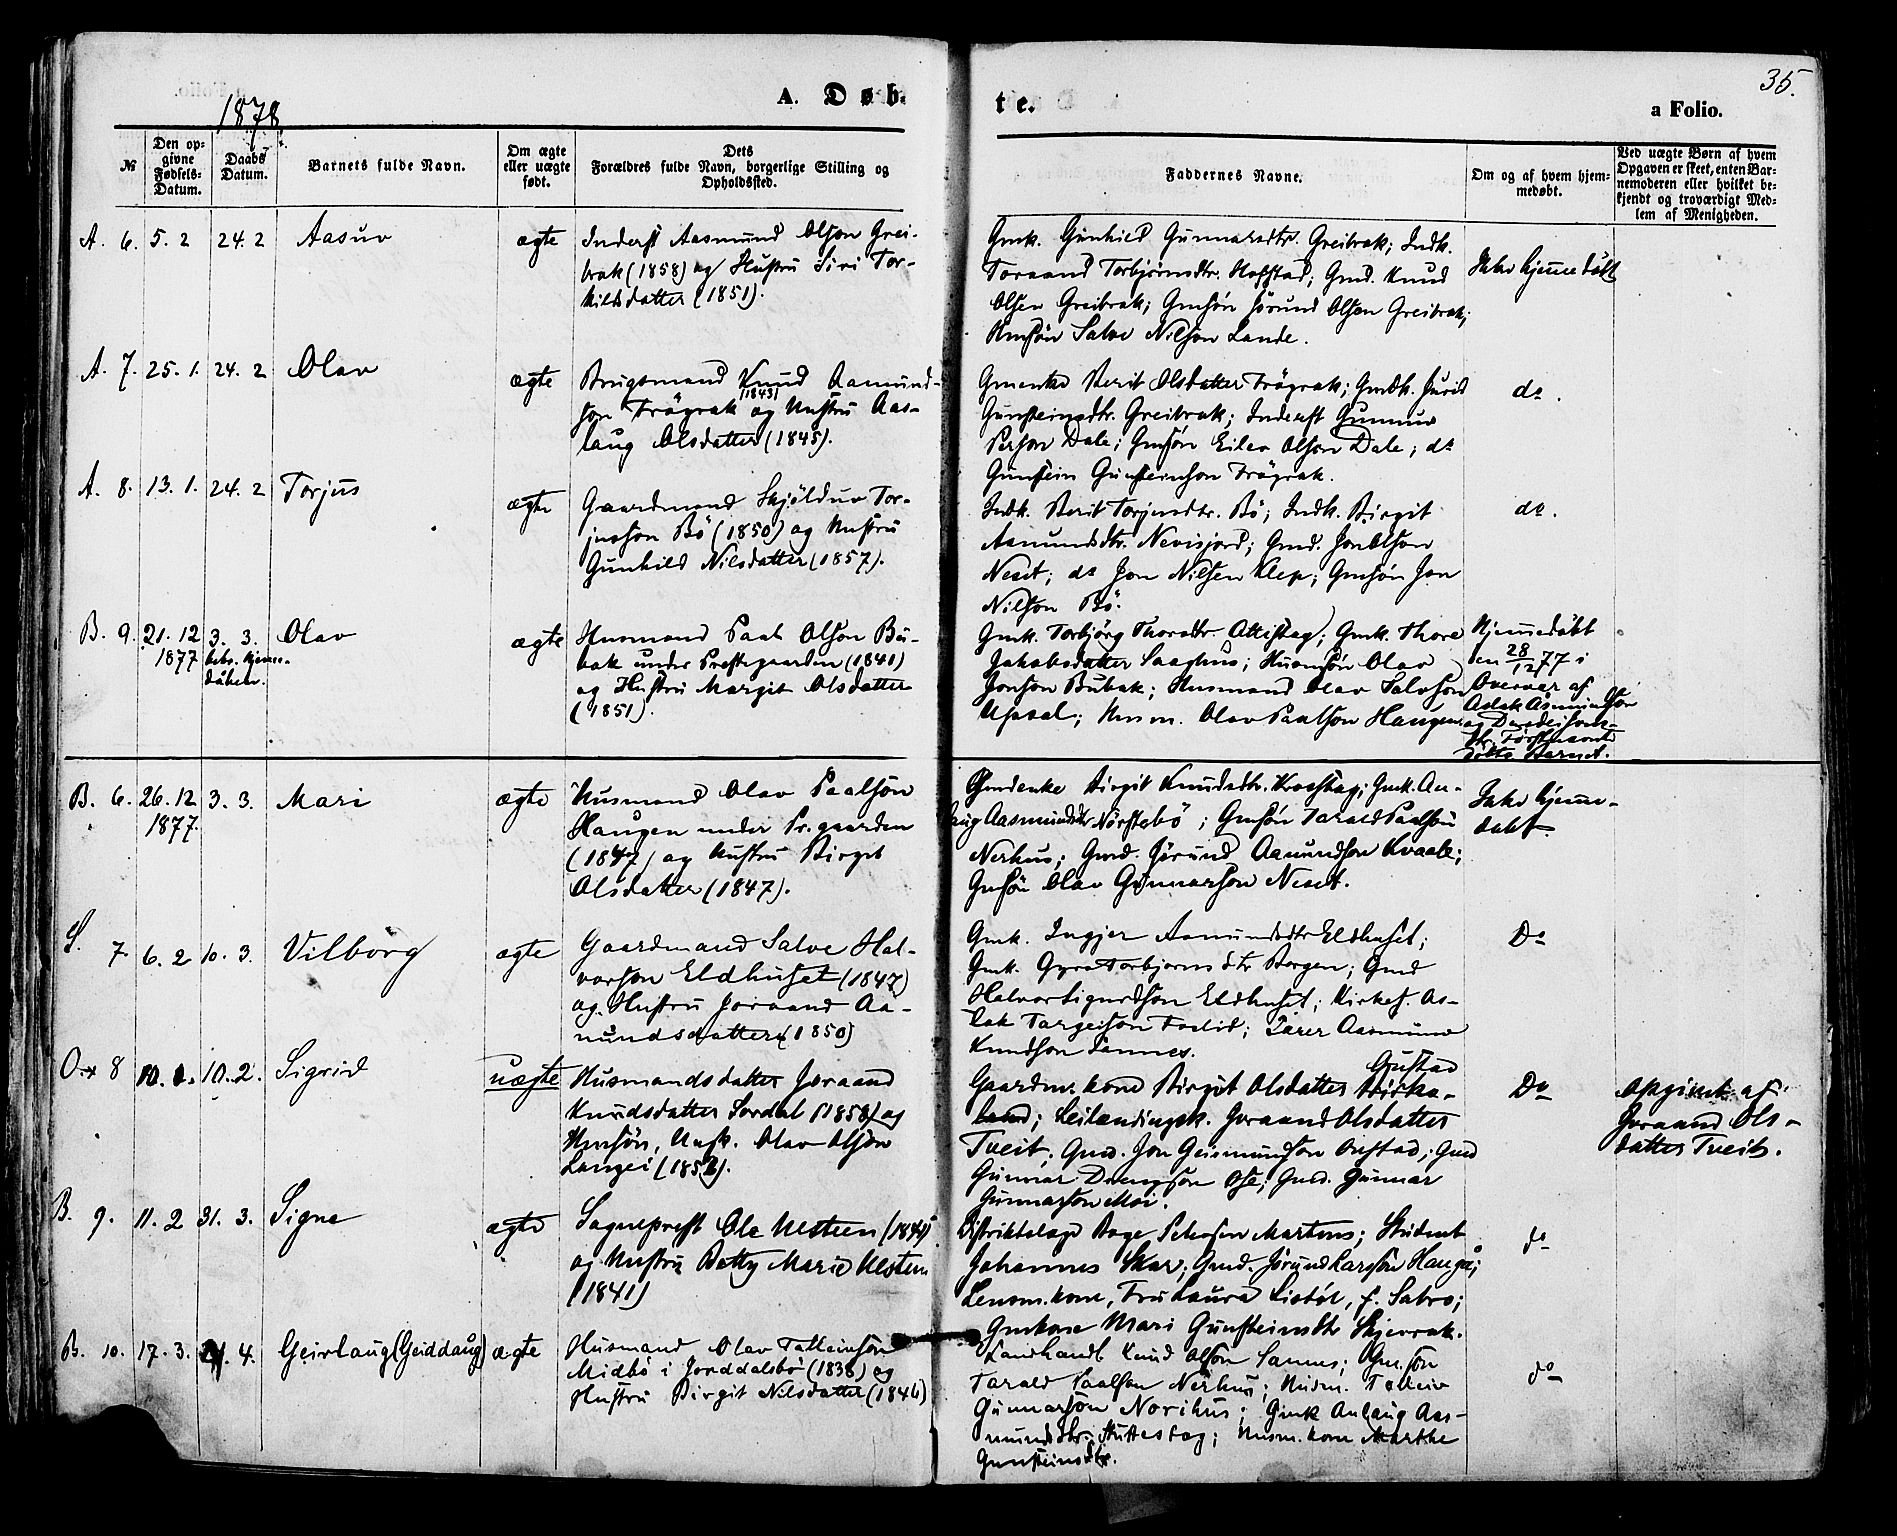 1878
A. Døb-
te.
35.
a Folio.
№
Den op-
givne
Fødsels-
Datum.
Daabs
Datum.
Barnets fulde Navn.
Om ægte
eller uægte
født.
Dets
Forældres fulde Navn, borgerlige Stilling og
Opholdssted.
Faddernes Navne.
Om og af hvem hjem-
medøbt.
Ved uægte Børn af hvem
Opgaven er skeet, enten Bar-
nemoderen eller hvilket be-
kjendt og troværdigt Med-
lem af Menigheden.
A. 6. 5. 2 24. 2 Aasuv ægte
Inderst Aasmund Olson Grei-
brak (1858) og Hustru Siri Tor-
kildsdatter (1851).
Gmk. Gunhild Gunnarsdtr. Greibrak; Indk.
Toraand Torbjørnsdtr. Hofstad; Gmd. Knud
Olsen Greibrak; Gmsøn Jørund Olsen Greibrak;
Hmsøn Salve Nilson Lande.
Ikke hjemmedøbt
A. 7. 25. 1. 24. 2 Olav ægte
Brugsmand Knud Aamund-
son Frøyrak (1843) og Hustru Aas-
laug Olsdatter (1845).
Gmenke Berit Olsdatter Frøyrak; Gmdk. Gurid
Gunsteinsdtr. Greibrak; Inderst Gunnuv
Person Dale; Gmsøn Eilev Olson Dale; do
Gunstein Gunsteinson Frøyrak.
do.
A. 8. 13. 1. 24. 2 Torjus ægte
Gaardmand Skjølduv Tor-
jusson Bö (1850) og Hustru
Gunhild Nilsdatter (1857).
Indk. Berit Torjusdtr. Bö; Indk. Birgit
Aamundsdtr. Nevisjord; Gmd. Jon Olson
Neset; do Jon Nilsen Klep; Gmsøn Jon
Nilson Bö.
do.
B. 9. 21. 12 1877 3. 3. Olav ægte
Husmand Paal Olson Bu-
bak under Prestegaarden (1841)
og Hustru Margit Olsdatter
(1851).
Gmk. Torbjørg Thorsdtr. ; Gmk. Thore
Jakobsdatter ; Husmsøn Olav
Jonson Bubak; Husmand Olav Salveson
Upsal; Husm. Olav Paalson Haugen
Hjemmedøbt
den 28/12 77 i
Overvær af
Aslak Asmundson
døbte Barnet.
B. 6. 26. 12 1877. 3. 3. Mari ægte
Husmand Olav Paalson
Haugen under Pr.gaarden
(1847) og Hustru Birgit
Olsdatter (1847).
Gmdenke Birgit Knudsdtr. ; Gmk. An-
laug Aasmundsdtr Nörstebö; Gmsøn Tarald Paalson
Nerhus; Gmd. Jørund Aamundson Kvaale;
Gmsøn Olav Gunnarson Neset.
Ikke hjemme-
døbt
S. 7. 6. 2 10. 3. Vilborg ægte
Gaardmand Salve Hal-
vorson Eldhuset (1847)
og Hustru Joraand Aa-
mundsdatter (1850)
Gmk. Ingjer Aamundsdtr Eldhuset;
Gmk. Gyro Torbjornsdtr Bergen; Gmd
Halvor Sigurdson Eldhuset; Kirkes. As-
lak Targeison Fodlid; Lærer Aasmund
Knudson Sannes.
Do
O. 8 10. 1. 10. 2. Sigrid uægte
Husmandsdatter Joraand
Knudsdatter Sordal (1858) og
Hmsøn, Ungk. Olav Olson
Langei (1852).
Gaardm. kone Birgit Olsdatter Gustad
; Leilændingsk. Joraand Olsdatter
Tveit; Gmd. Jon Geirmundson ; Gmd
Gunnar Drengson Ose; Gmd. Gunnar
Gunnarson Moi.
Do
Opgivet af
Joraand Ols-
datter Tveit.
B. 9. 11. 2 31. 3. Signe ægte
Sogneprest Ole Ulsteen (1840)
og Hustru Betty Marie Ulsteen
(1841)
Distriktslæge Aage Petersen Martens; Student
Johannes Skar; Gmd. Jørund Larsson Haugå;
Lensm. kone, Fru Laura Liestøl, f. Sabro;
Gmkone Mari Gunsteinsdtr Skjevrak.
do
B. 10. 17. 3. 21. 4. Geirlaug (Geiddaug) ægte
Husmand Olav Talleivson
Midbø i Jorddalsbø (1838) og
Hustru Birgit Nilsdatter (1846)
Landhandl. Knud Olson Sannes; Gm. søn
Tarald Paalson Nerhus; Husm. Talleiv
Gunnarson Norihus; Gmk Anlaug Aas-
mundsdtr. ; Husm. kone Marthe
Gunsteinsdtr.
do